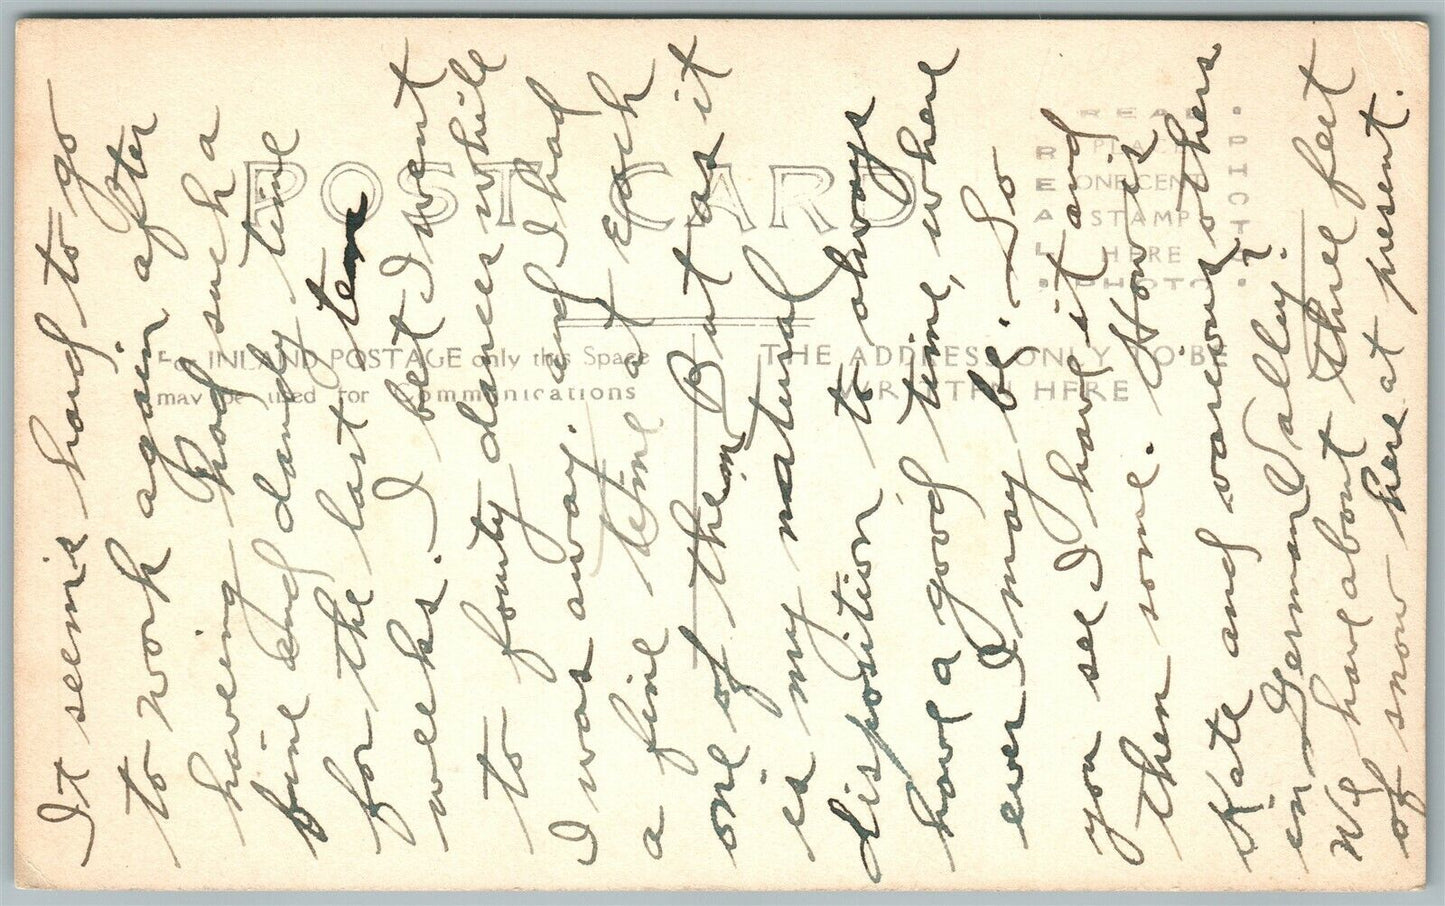 It seems hard to go
to work again after
having had such a
fine and dandy time
for the last ten
weeks. I bet I went
to fourty dances while
I was away. and I had
a fine time at each
one of them. But as it
is my natural
disposition to always
have a good time, where
ever I may be. So
you see I have it and
then some. How is
Kate and various others
in German Valley?
We have about three feet
of snow here at present.
POST CARD
For INLAND POSTAGE only this Space
may be used for Communications
THE ADDRESS ONLY TO BE
WRITTEN HERE
REAL PHOTO
REAL PHOTO
PLACE
ONE CENT
STAMP
HERE